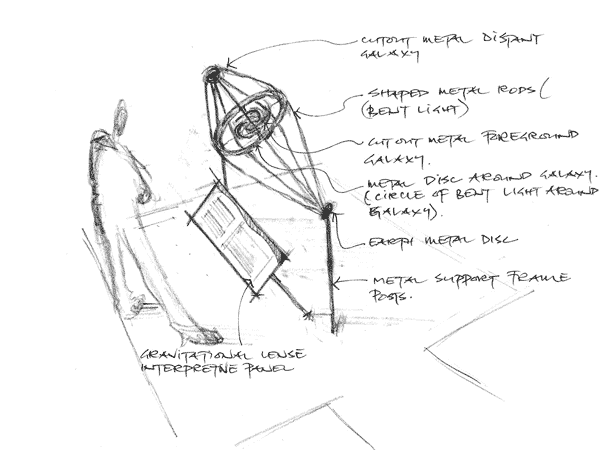 CUTOUT METAL DISTANT
GALAXY
SHAPED METAL RODS (
(BENT LIGHT)
CUTOUT METAL FOREGROUND
GALAXY.
METAL DISC AROUND GALAXY.
(CIRCLE OF BENT LIGHT AROUND
GALAXY).
EARTH METAL DISC
METAL SUPPORT FRAME
POSTS.
GRAVITATIONAL LENSE
INTERPRETIVE PANEL